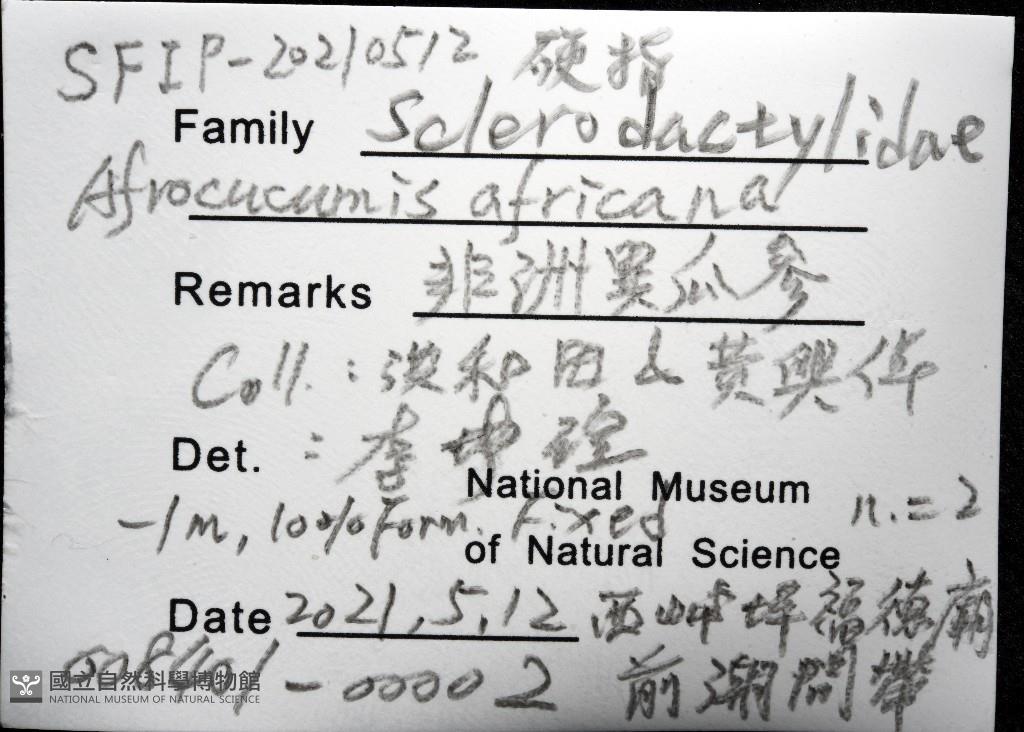 SFIP-20210512 硬指
Family Sclerodactylidae
Afrocucumis africana
Remarks 非洲異瓜參
Coll.: 洪和田 & 黃興倬
Det. : 李坤瑄
National Museum
-1m, 10% Form. Fixed n.=2
of Natural Science
Date 2021.5.12 西嶼坪福德廟
-00002 前潮間帶
國立自然科學博物館
NATIONAL MUSEUM OF NATURAL SCIENCE